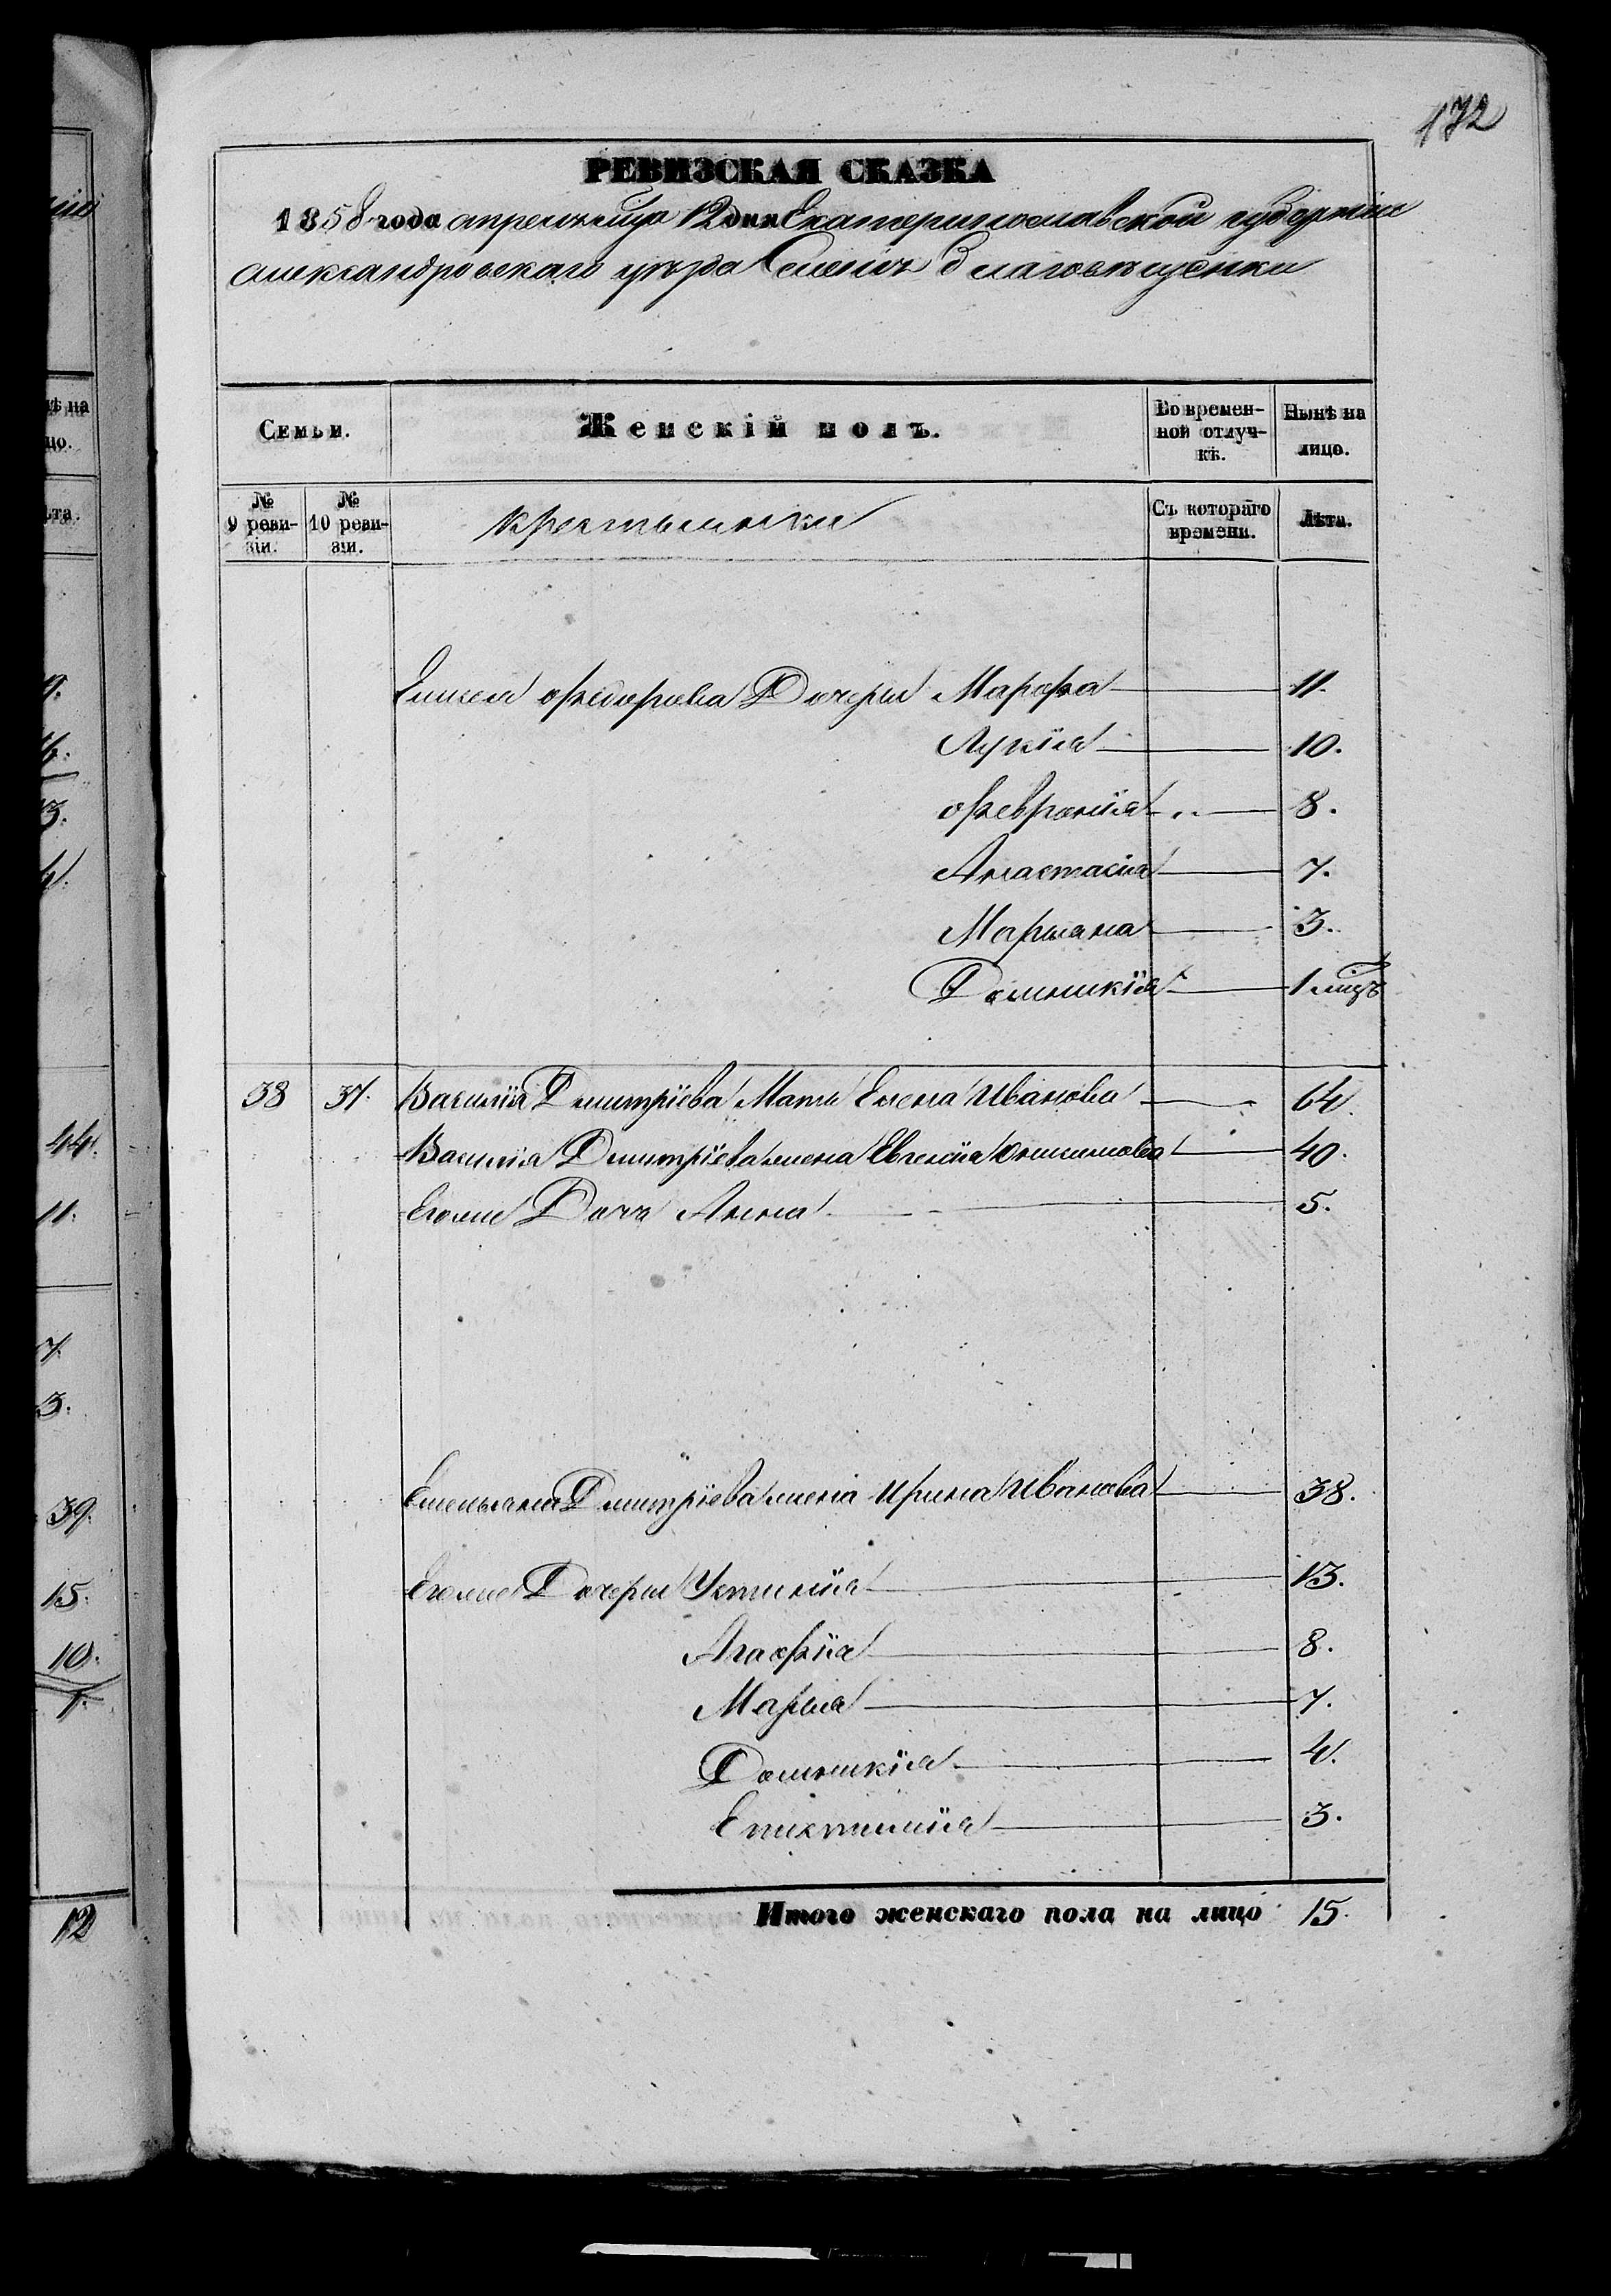 172
РЕВИЗСКАЯ СКАЗКА
1858 года апреля мца 12 дня Екатеринославской губернии
Александровского уезда Селенія Благовещенки
Семьи. Женскій полъ. Во времен-ной отлуч-кѣ. Нынѣ на лицо.
№ 9 реви-зіи. № 10 реви-зіи. крестьянки Съ котораго времени. Лѣта.
Федорова Дочери Марфа 11.
Лукія 10.
Февронія 8.
Анастасія 7.
Марьяна 3.
Домникія 1 мцъ
38 37. Василія Дмитріева Мать Елена Иванова 64.
Василія Дмитріева жена Евгенія 40.
Его же Дочь Анна 5.
Емельяна Дмитріева жена Ирина Иванова 38.
Его же Дочери Устинія 13.
Агафія 8.
Марья 7.
Домникія 4.
Епистимія 3.
Итого женскаго пола на лицо 15.
нѣ на
цо.
ѣта.
44.
11.
7.
3.
39.
15.
10.
1.
12